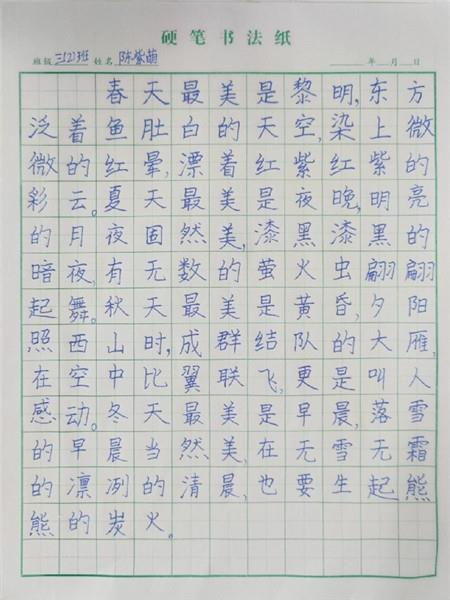 硬笔书法纸
班级 三(2)班 姓名 陈紫萌 年 月 日
春天最美是黎明,东方
泛着鱼肚白的天空,染上微
微的红晕,漂着红紫红紫的
彩云。夏天最美是夜晚,明亮
的月夜固然美,漆黑漆黑的
暗夜,有无数的萤火虫翩翩
起舞。秋天最美是黄昏,夕阳
照西山时,成群结队的大雁,
在空中比翼联飞,更是叫人
感动。冬天最美是早晨,落雪
的早晨当然美,在无雪无霜
的凛冽的清晨,也要生起熊
熊的炭火。